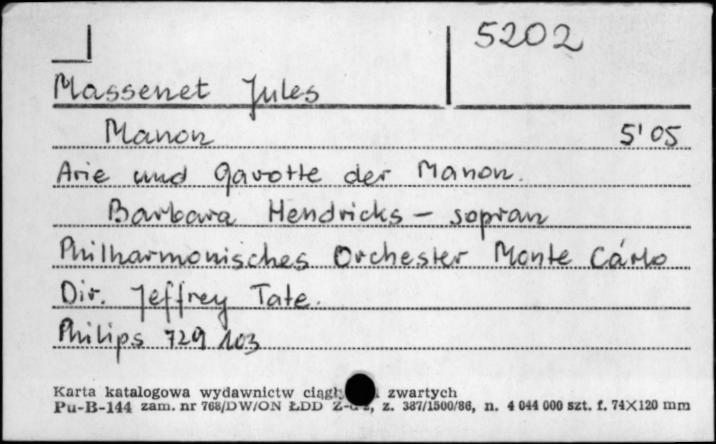 5202
Massenet Jules
Manon 5'05
Arie und Gavotte der Manon.
Barbara Hendricks - sopran
Philharmonisches Orchester Monte Cárlo
Dir. Jeffrey Tate.
Philips 729 103
Karta katalogowa wydawnictw zwartych
Pu-B-144 zam. nr 768/DW/ON ŁDD z. 387/1500/86, n. 4 044 000 szt. f. 74×120 mm